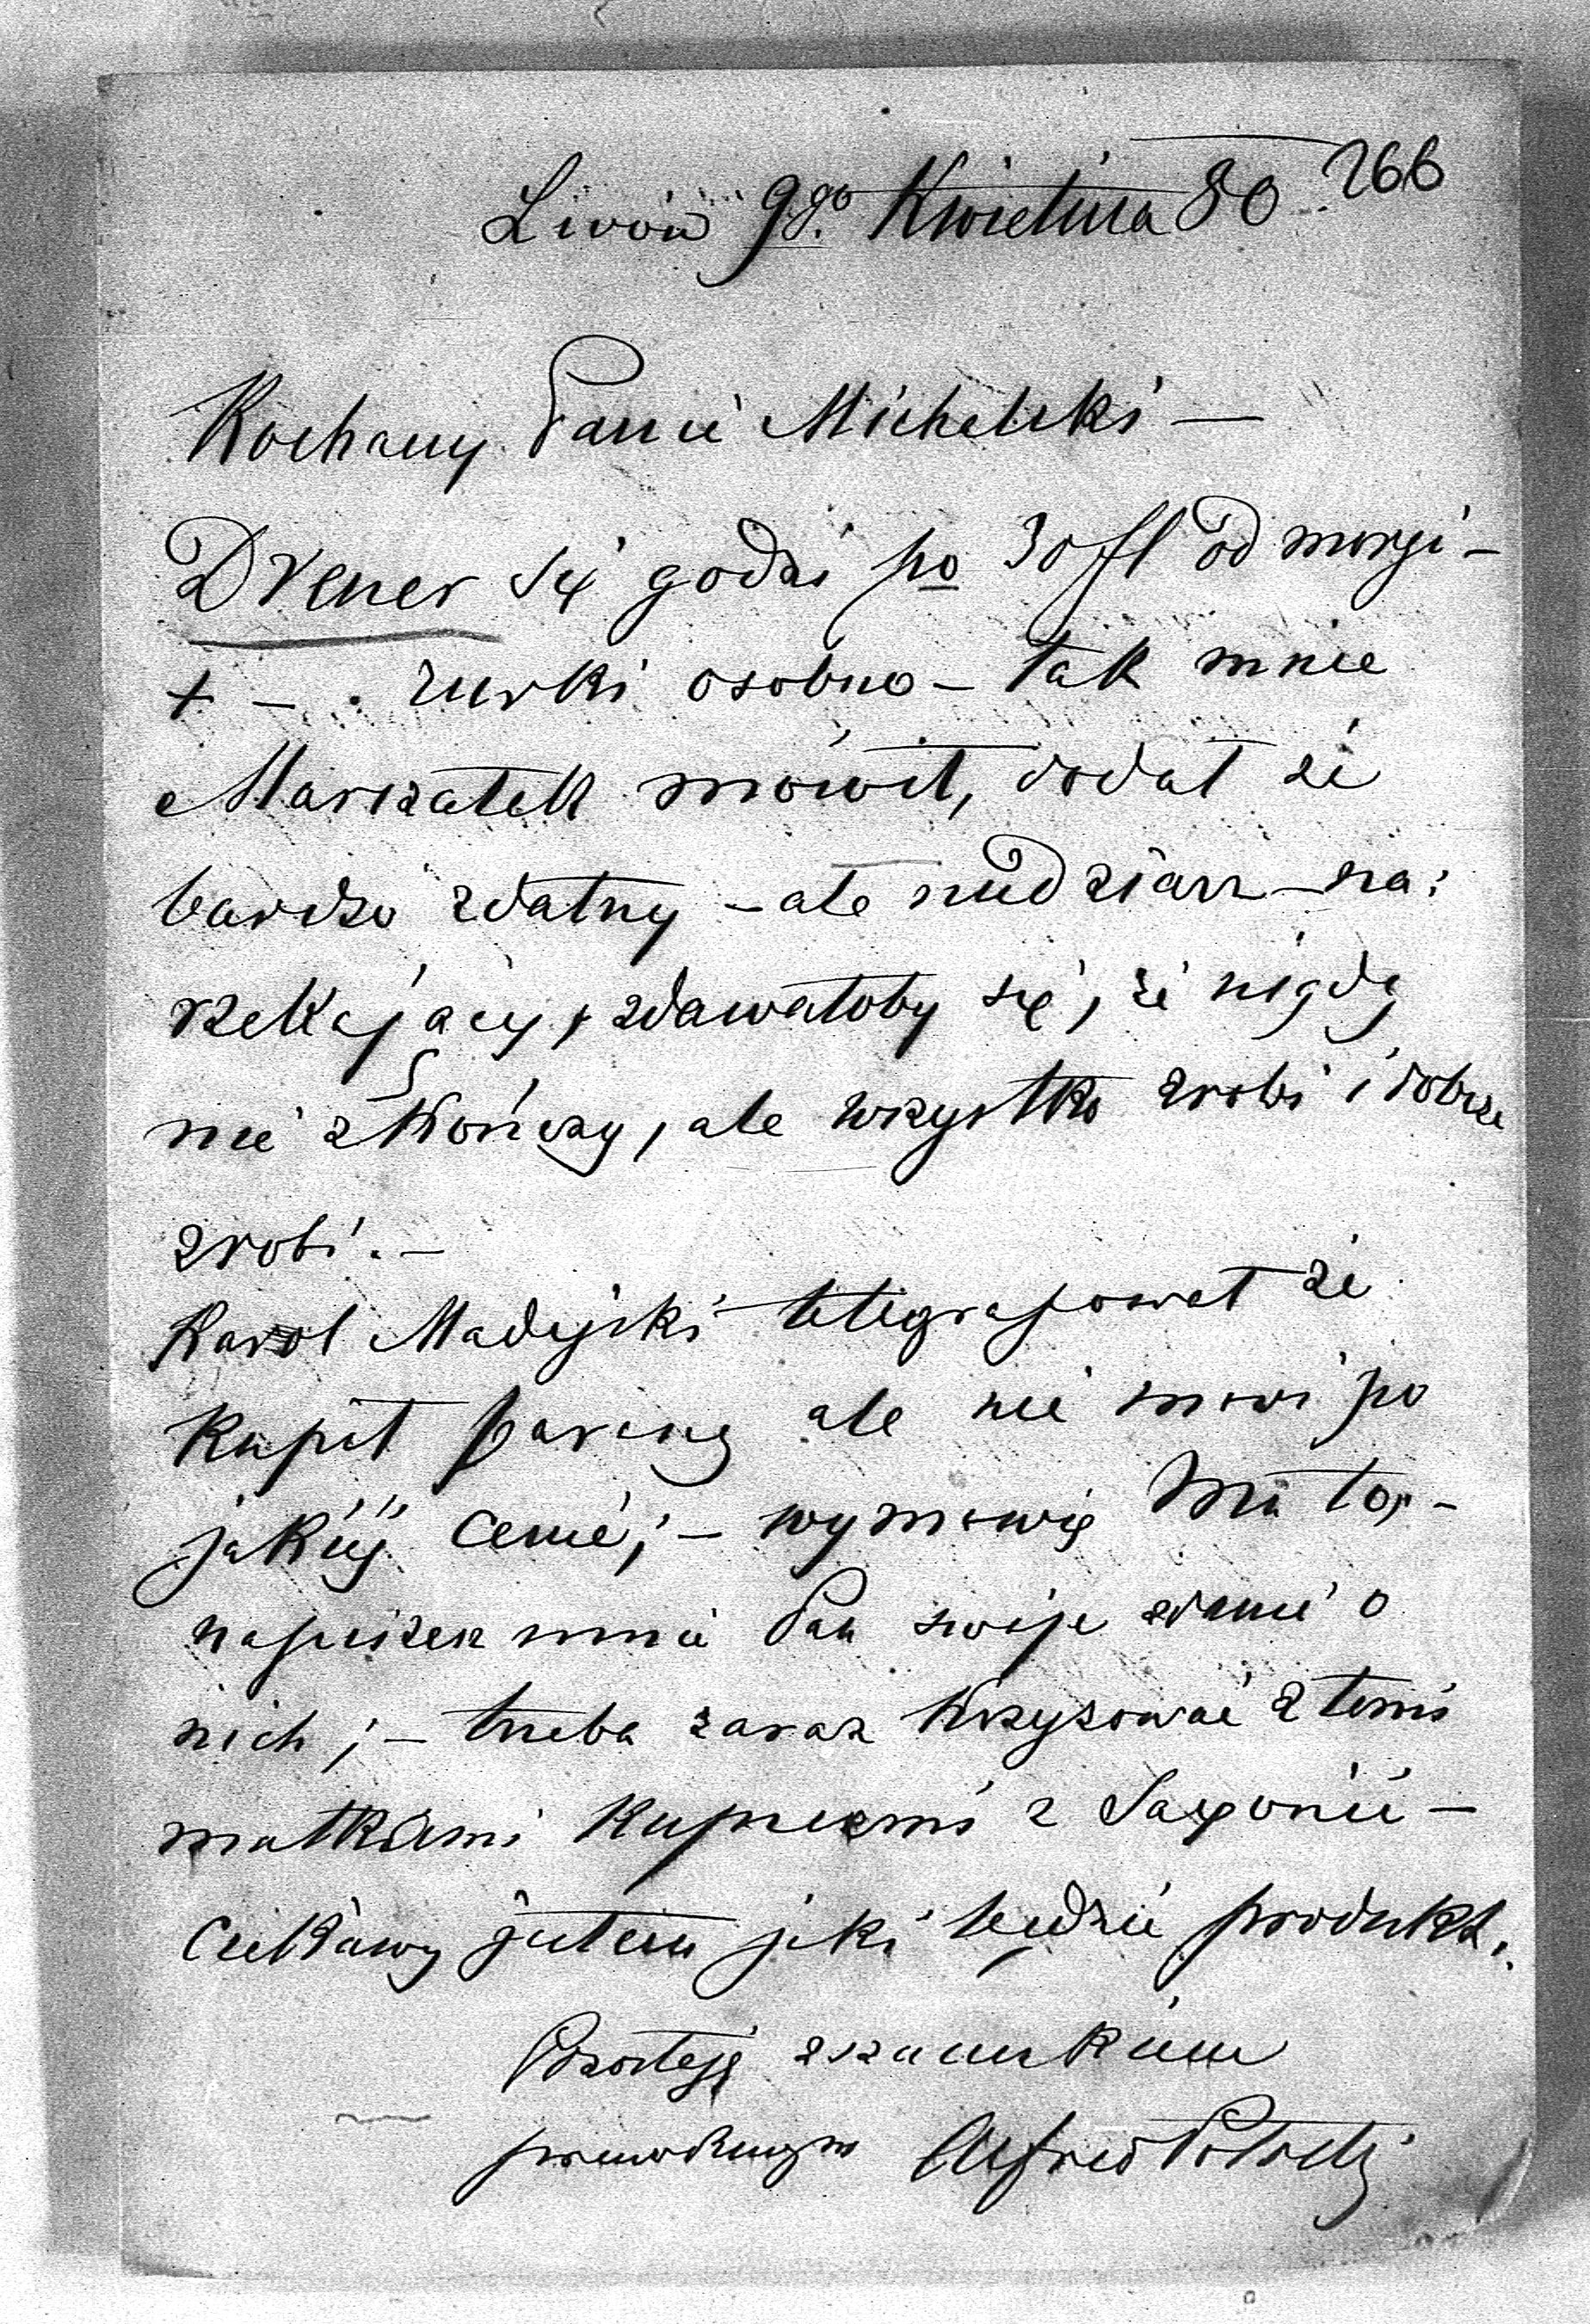 266
Lwów 9go. Kwietnia 80
Kochany Panie Michalski —
Drener się godzi po 30 fl od morgi —
+ — . rurki osobno — tak mnie
Marszałek mówił, dodał że
bardzo zdatny — ale nudziarz — na:
rzekający, zdawałoby się, że nigdy
nie zkończy, ale wszystko zrobi i dobrze
zrobi. —
Karol Madejski telegrafował że
kupił barany ale nie mówi po
jakiej cenie; — wymówię mu to, —
napiszesz mnie Pan swoje zdanie o
nich; — trzeba zaraz krzyżować z temi
matkami kupnemi z Saxonii —
Ciekawy jestem jaki będzie produkt.
Pozostaję z szacunkiem
prawdziwym Alfred Potocki